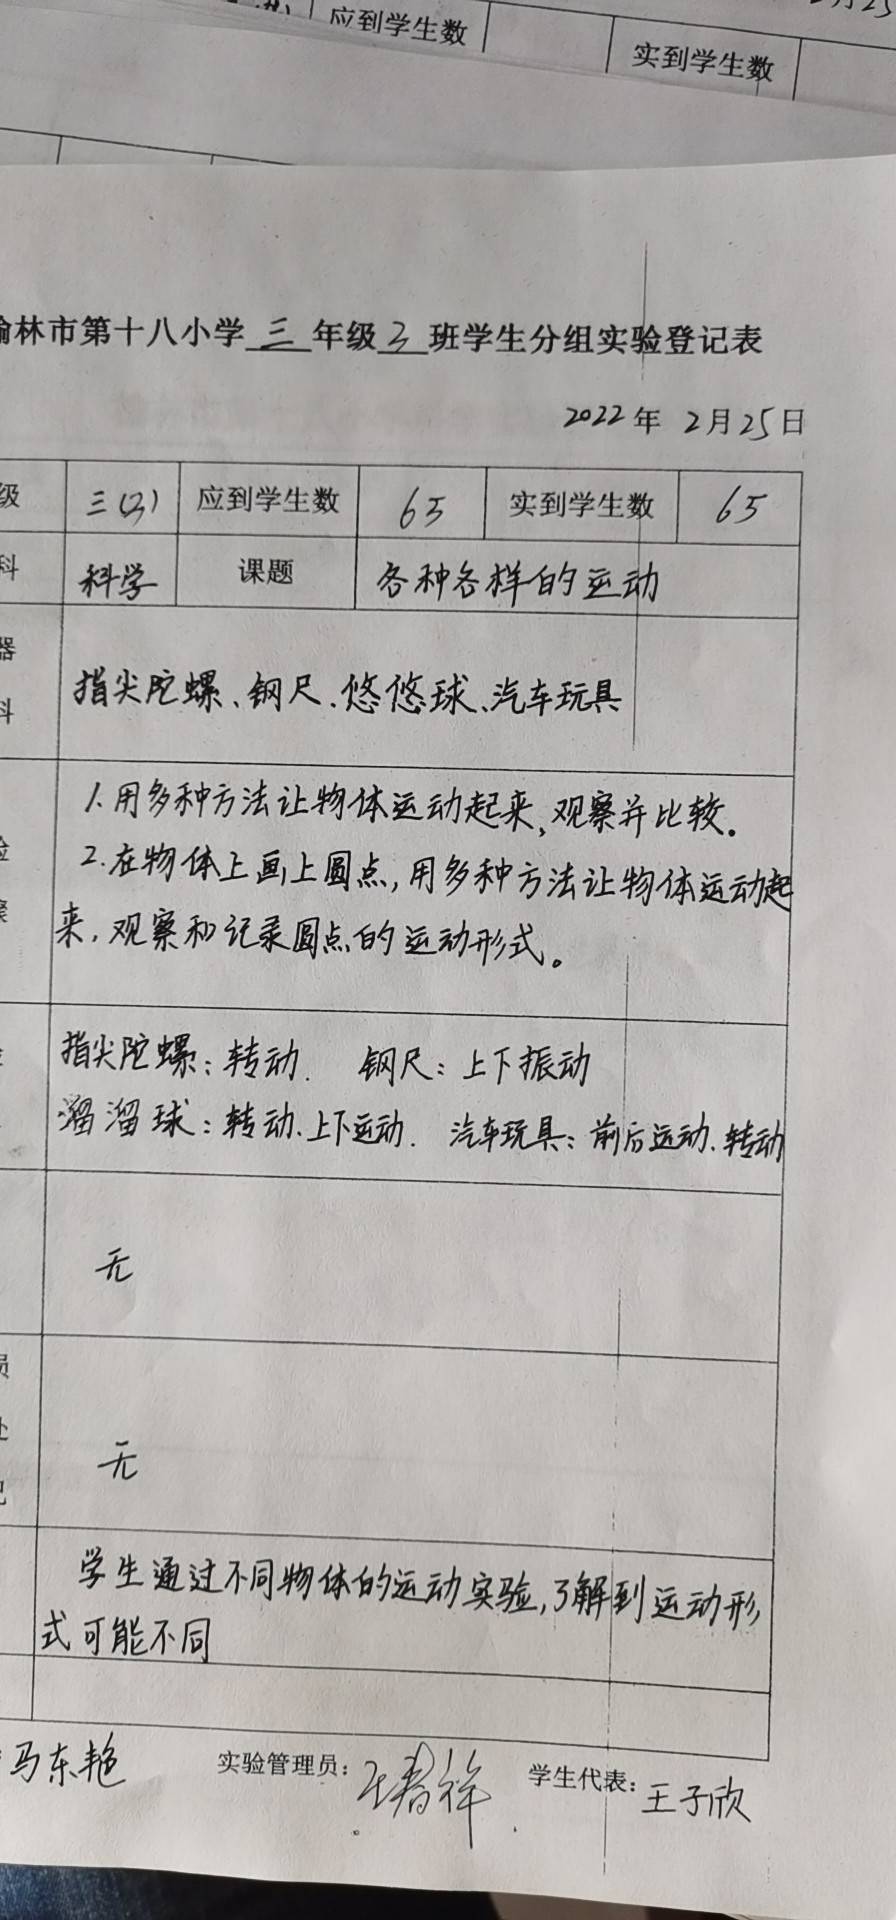 应到学生数
实到学生数
榆林市第十八小学 三 年级 3 班学生分组实验登记表
2022年 2月25日
级 三(3) 应到学生数 65 实到学生数 65
科 科学 课题 各种各样的运动
器
科 指尖陀螺、钢尺、悠悠球、汽车玩具
1.用多种方法让物体运动起来,观察并比较。
2.在物体上画上圆点,用多种方法让物体运动起
来,观察和记录圆点的运动形式。
指尖陀螺:转动. 钢尺:上下振动
溜溜球:转动、上下运动. 汽车玩具:前后运动、转动
无
员
无
学生通过不同物体的运动实验,了解到运动形
式可能不同
马东艳 实验管理员: 学生代表:王子欣